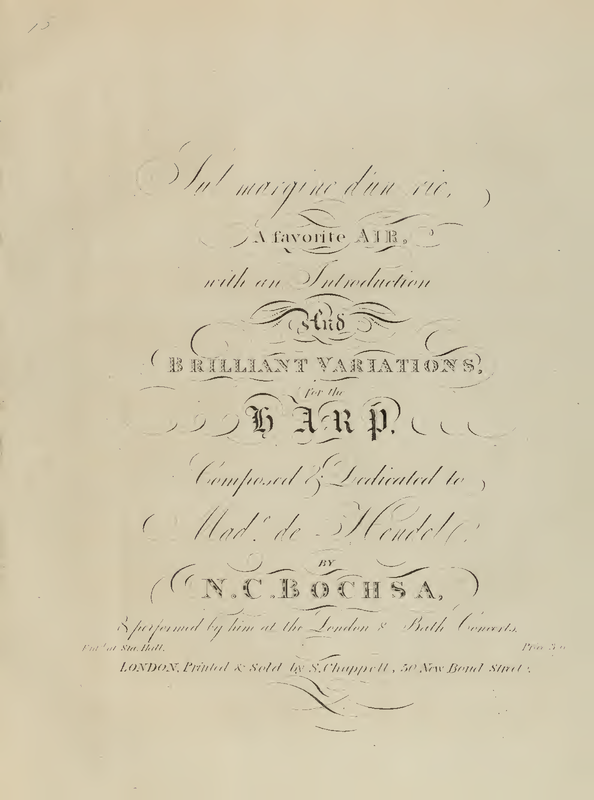 15
Sul margine d'un rio,
A favorite AIR,
with an Introduction
And
BRILLIANT VARIATIONS,
for the
HARP.
Composed & Dedicated to
Mad.e de
BY
N. C. BOCHSA,
& performed by him at the London & Bath Concerts.
Ent.d at Sta. Hall. Price
LONDON, Printed & Sold by S. Chappell, 50 New Bond Street.